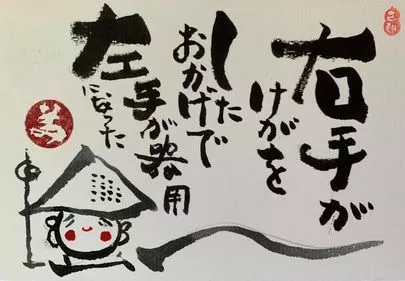 右手が
けがを
した
おかげで
左手が器用
になった